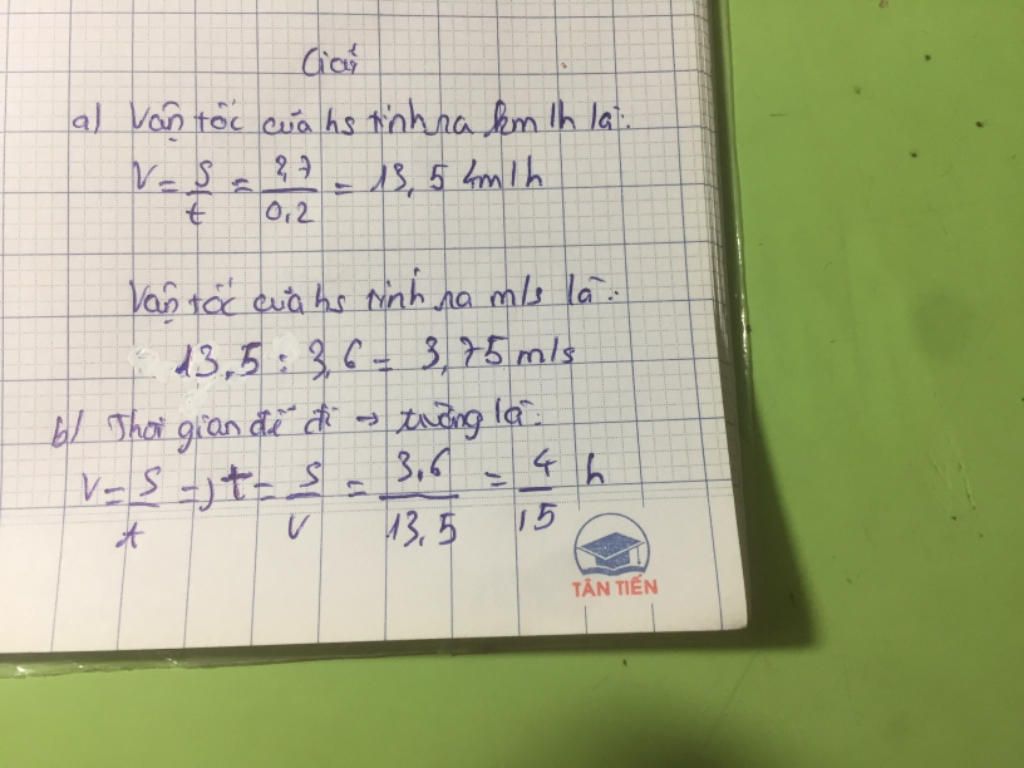 Giải
a) Vận tốc của hs tính ra km/h là:
V = S/t = 2,7/0,2 = 13,5 km/h
Vận tốc của hs tính ra m/s là:
13,5 : 3,6 = 3,75 m/s
b) Thời gian để đi → trường là:
V = S/t => t = S/V = 3,6/13,5 = 4/15 h
TÂN TIẾN